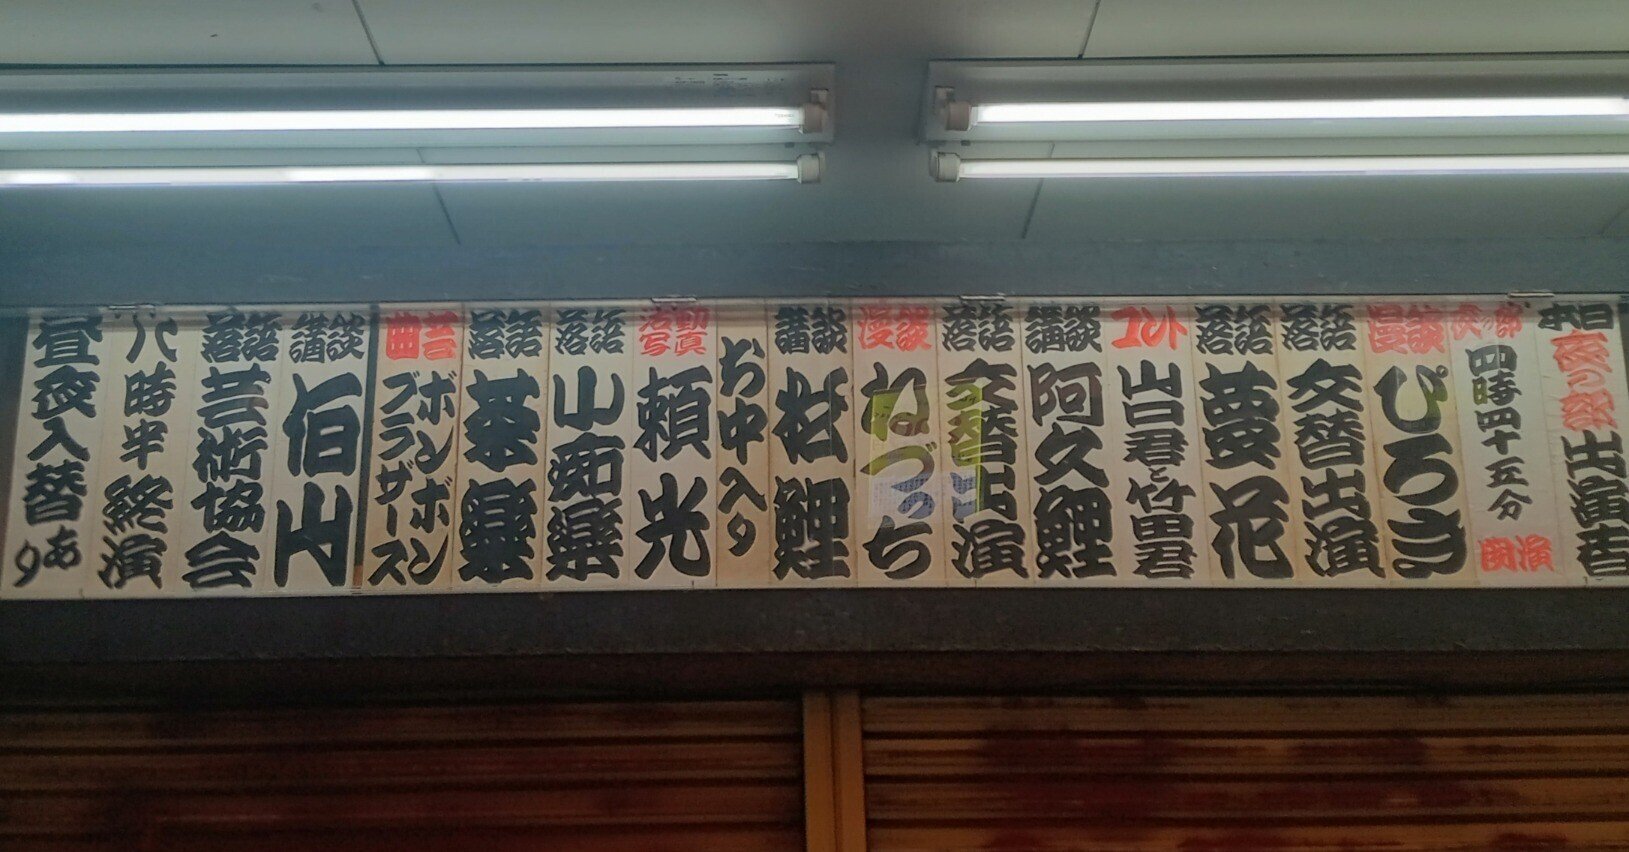 本日
夜の部
出演者
夜の部
四時四十五分
開演
漫談
ぴろき
落語
交替出演
落語
夢花
コント
山口君と竹田君
講談
阿久鯉
落語
交替出演
漫談
ねづっち
講談
松鯉
お中入り
活動
写真
頼光
落語
小痴楽
落語
茶楽
曲芸
ボンボン
ブラザース
講談
伯山
落語
芸術協会
八時半終演
昼夜入替あり